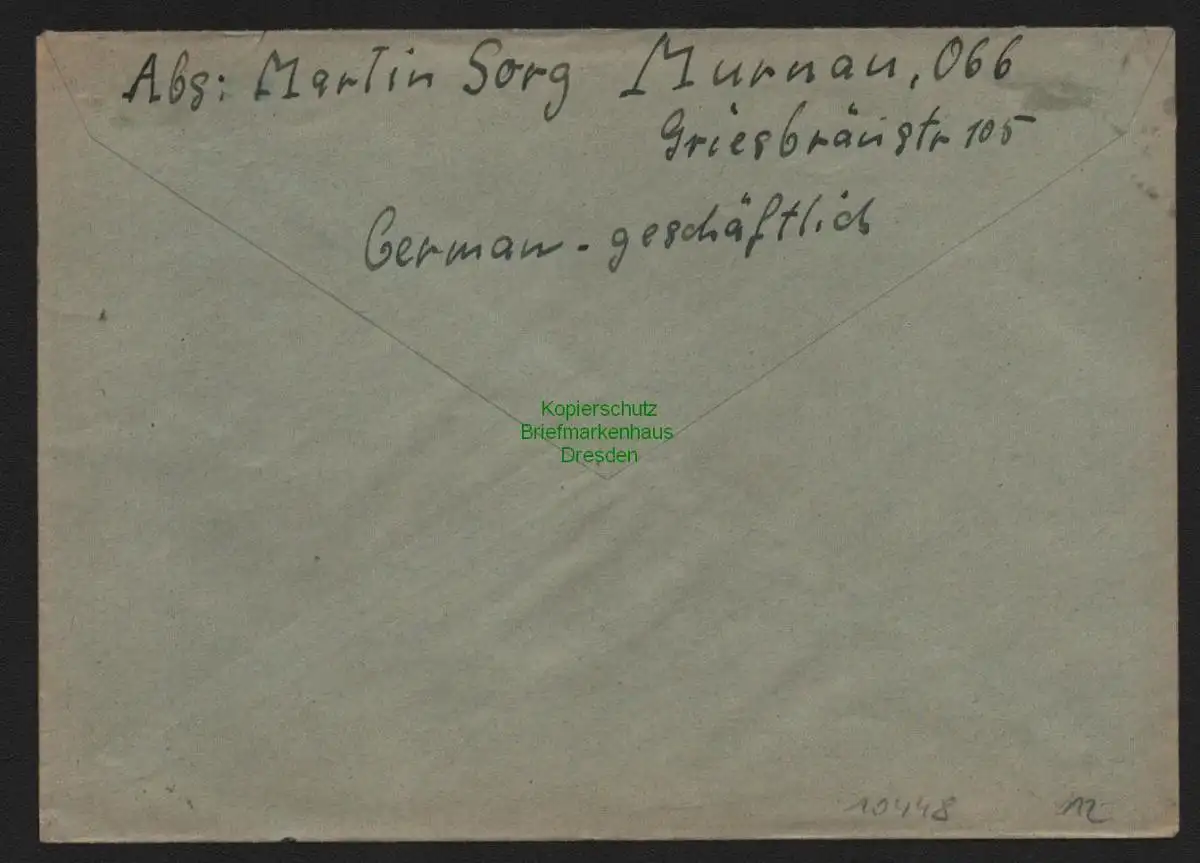 Abs: Martin Sorg Murnau, Obb
Griesbräustr 105
German - geschäftlich
Kopierschutz
Briefmarkenhaus
Dresden
10448 12